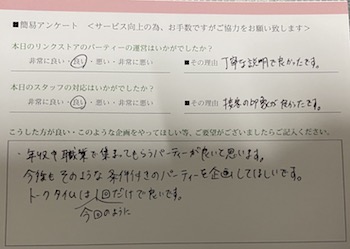 ■簡易アンケート ＜サービス向上の為、お手数ですがご協力をお願い致します＞
本日のリンクストアのパーティーの運営はいかがでしたか？
非常に良い・良い・悪い・非常に悪い ■その理由 丁寧な説明で良かったです。
本日のスタッフの対応はいかがでしたか？
非常に良い・良い・悪い・非常に悪い ■その理由 接客の印象が良かったです。
こうした方が良い・このような企画をやってほしい等、ご要望がございましたらご記入ください。
・年収や職業で集まってもらうパーティーが良いと思います。
今後もそのような条件付きのパーティーを企画してほしいです。
トークタイムは1回だけで良いです。
今回のように